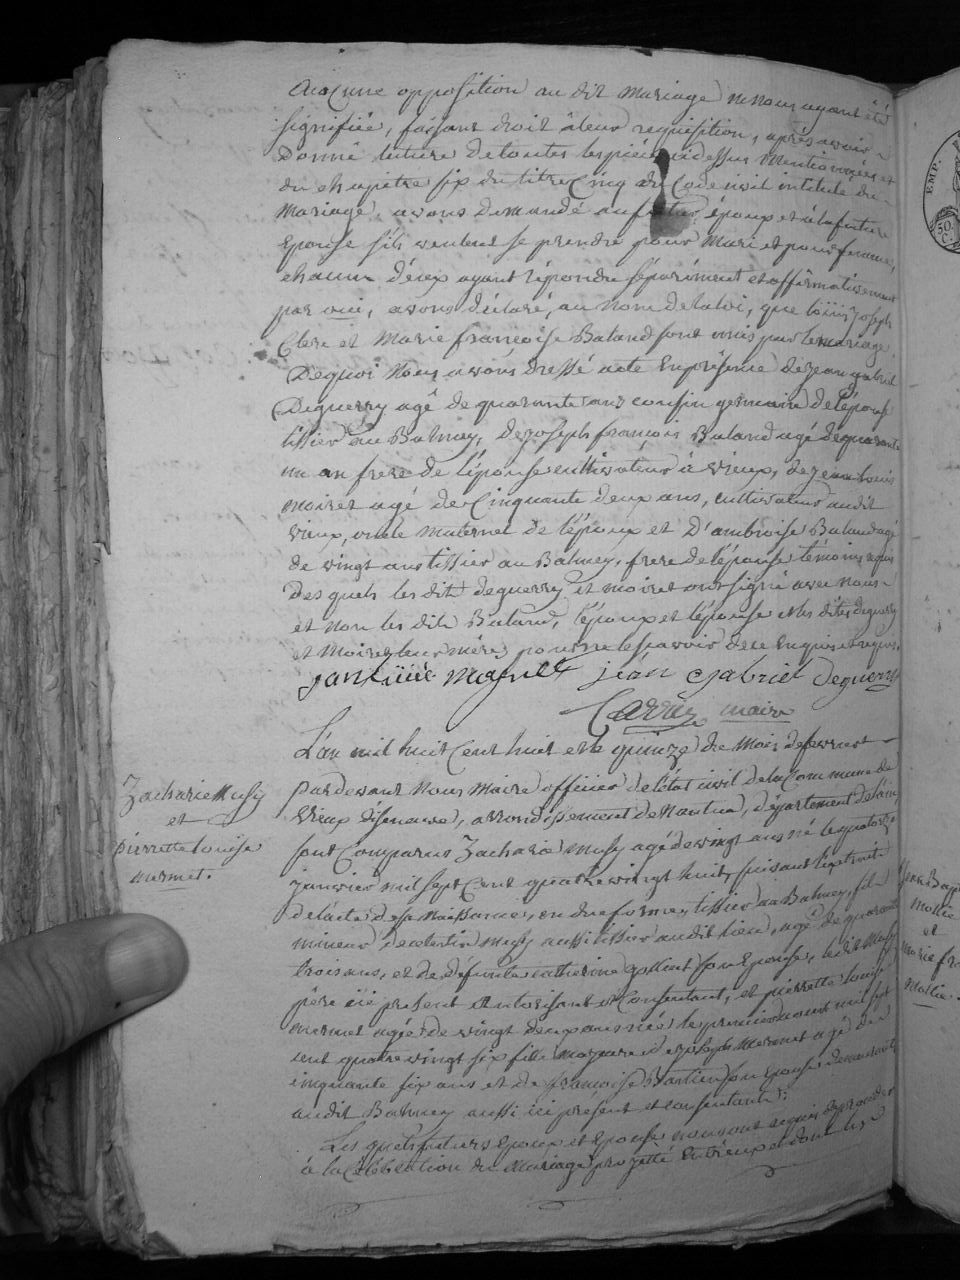 Aucune opposition au dit Mariage ne nous ayant été
signifiée, faisant droit à leur requisition, après avoir
Donné lecture de toutes les pièces cidessus Mentionnées et
du chapitre six du titre Cinq du Code civil intitulé du
Mariage, avons demandé au futur époux et à la future
Epouse s'ils veulent se prendre pour Mari et pour femme,
chacun d'eux ayant répondu séparément et affirmativement
par oui, avons déclaré, au nom de la loi, que Joseph
Clerc et Marie françoise Baland sont unis par le mariage.
De quoi Nous avons dressé acte En présence de jean gabriel
Deguerry agé de quarante ans cousin germain de l'épouse
tissier au Balmey, de joseph françois Baland agé de quarante
un an frere de l'épouse cultivateur à vieux, de jean louis
moiret agé de Cinquante deux ans, cultivateur audit
vieux, oncle maternel de l'époux et D'ambroise Baland agé
de vingt ans tissier au Balmey, frere de l'épouse témoins
Des quels les dits deguerry et moiret ont signé avec Nous
et non les dits Baland, l'époux et l'épouse et les dites deguerry
et Moiret leurs mères pour ne le savoir de ce Enquis et requis.
Magnet jean gabriel Deguerry
maire
L'an mil huit Cent huit et le quinze du Mois de fevrier
Pardevant Nous Maire officier de l'état civil de la Commune de
Vieux disenave, arrondissement de Nantua, département de lain,
sont Comparus Zacharie Musy agé de vingt ans né le quatorze
janvier mil sept Cent quatre vingt huit, suivant l'extrait
de l'acte de sa Naissance, en due forme, tissier au Balmey, fils
mineur de celestin Musy aussi tissier audit lieu, agé de quarante
trois ans, et de défunte catherine son Epouse, le dit Musy
père ici présent autorisant et Consentant, et pierrette louise
mermet agée de vingt deux ans née le premier aout mil sept
cent quatre vingt six fille majeure de joseph Mermet agé de
cinquante six ans et de françoise son Epouse demeurant
audit Balmey aussi ici présent et consentant;
Les quels futurs Epoux et Epouse nous ont requis de proceder
à la Célébration du Mariage projetté Entr'eux et dont les
Zacharie Musy
et
pierrette louise
mermet.
EMP.
50.
C.
Jean Bapt
Mollie
et
Marie fr
Mollie.